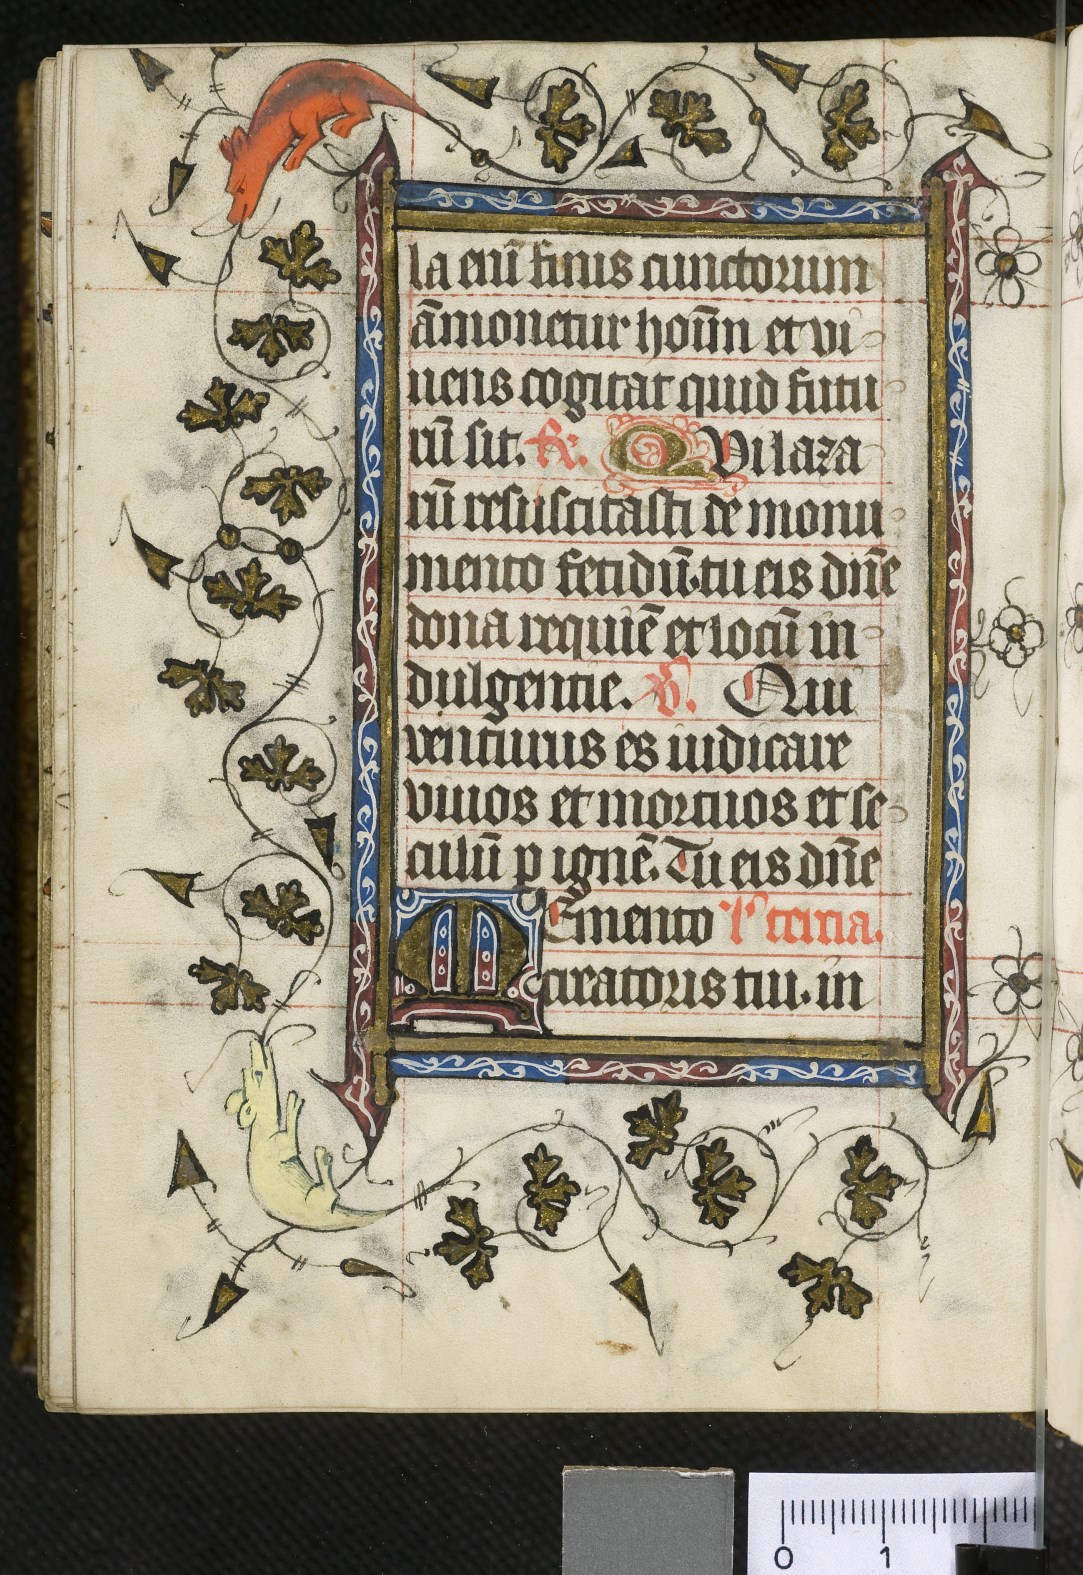 la enī finis cunctorum
āmonetur hoīm et vi
uens cogitat quid futu
rū sit. R. QVi laza
rū resuscitasti de monu
mento fetidū. tu eis dn̄e
dona requiē et locū in
dulgentie. V. Qui
venturus es iudicare
viuos et mortuos et se
culū p ignē. Tu eis dn̄e
MEmento l' tercia.
creatoris tui. in
0 1